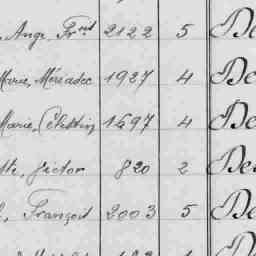 , Ange Frnt 2122 5 De
Marie, Méréadec 1927 4 De
Marie, Célestin 1697 4 De
Victor 820 2 Des
, François 2003 5 De